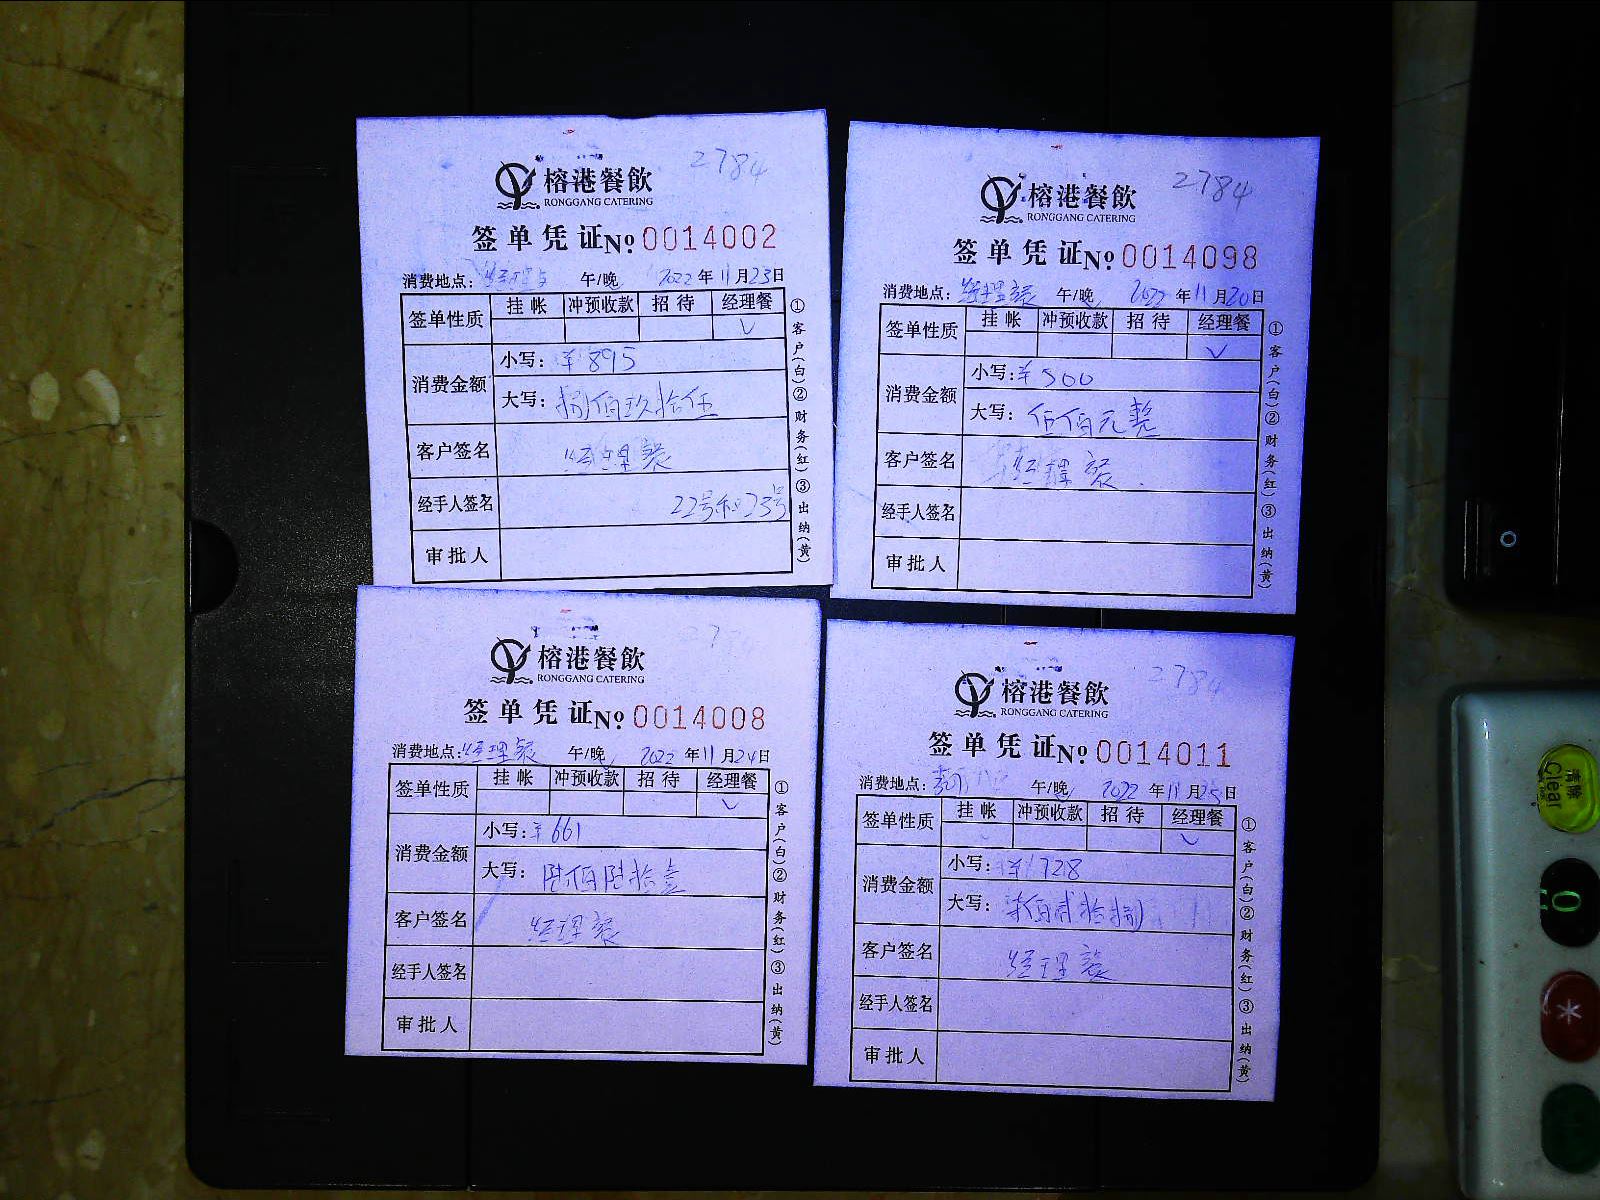 2784
榕港餐飲
RONGGANG CATERING
签单凭证 № 0014002
消费地点: 午/晚 2022年11月23日
签单性质 挂帐 冲预收款 招待 经理餐
✓
消费金额 小写: ¥895
大写: 捌佰玖拾伍
客户签名 经理餐
经手人签名 22号和23号
审批人
①客户(白)②财务(红)③出纳(黄)
2784
榕港餐飲
RONGGANG CATERING
签单凭证 № 0014098
消费地点: 经理餐 午/晚 2022年11月20日
签单性质 挂帐 冲预收款 招待 经理餐
✓
消费金额 小写: ¥500
大写: 伍佰元整
客户签名 经理餐
经手人签名
审批人
①客户(白)②财务(红)③出纳(黄)
榕港餐飲
RONGGANG CATERING
签单凭证 № 0014008
消费地点: 经理餐 午/晚 2022年11月24日
签单性质 挂帐 冲预收款 招待 经理餐
✓
消费金额 小写: ¥661
大写: 陆佰陆拾壹
客户签名 经理餐
经手人签名
审批人
①客户(白)②财务(红)③出纳(黄)
2784
榕港餐飲
RONGGANG CATERING
签单凭证 № 0014011
消费地点: 午/晚 2022年11月25日
签单性质 挂帐 冲预收款 招待 经理餐
✓
消费金额 小写: ¥728
大写: 柒佰贰拾捌
客户签名 经理餐
经手人签名
审批人
①客户(白)②财务(红)③出纳(黄)
清除
Clear
0
*